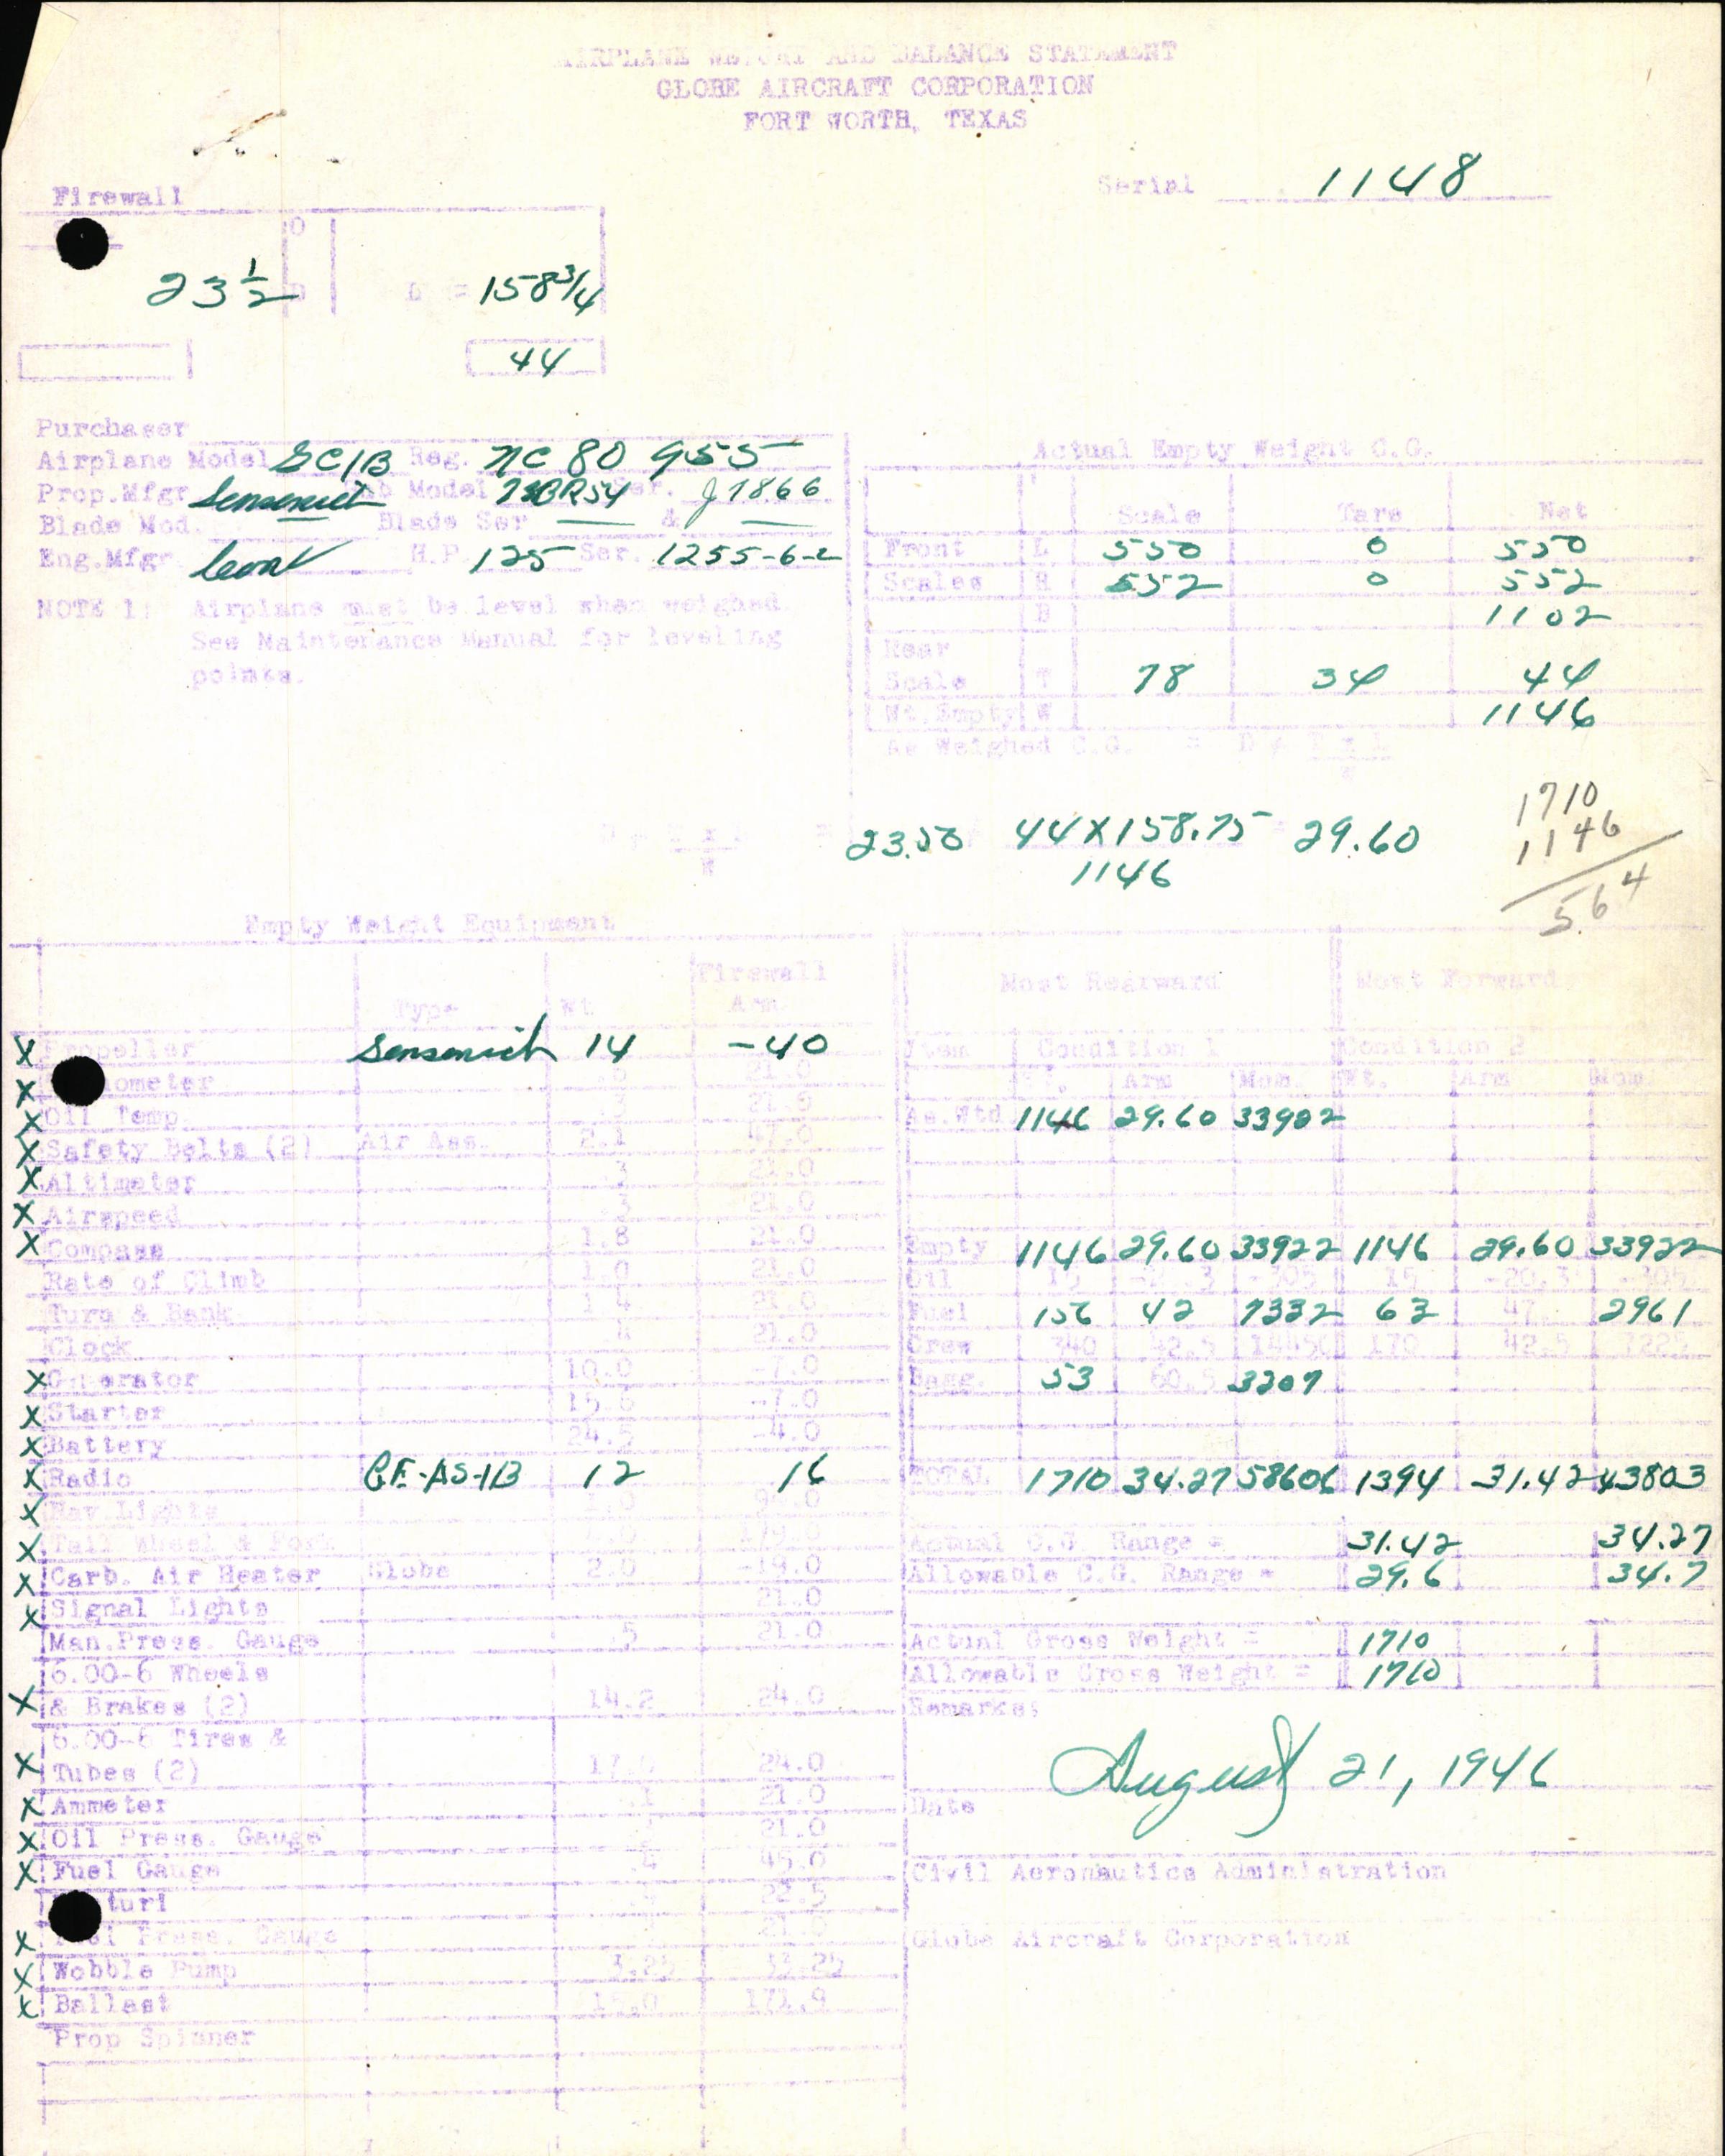 AIRPLANE WEIGHT AND BALANCE STATEMENT
GLOBE AIRCRAFT CORPORATION
FORT WORTH, TEXAS
Serial 1148
Firewall
23 1/2 D = 158 3/4
44
Purchaser
Airplane Model GC1B Reg. NC 80 955
Prop.Mfgr Sensenich Hub Model Ser. J7866
Blade Mod. Blade Ser — & —
Eng.Mfgr Cont H.P. 125 Ser. 1255-6-2
NOTE 1: Airplane must be level when weighed.
See Maintenance Manual for leveling
points.
Actual Empty Weight C.G.
Scale Tare Net
Front L 550 0 550
Scales R 552 0 552
1102
Rear
Scale T 78 34 44
Wt.Empty W 1146
As Weighed C.G. = D ≠ T x L
W
23.50 44X158.75 = 29.60
1146
1710
1146
564
Empty Weight Equipment
Type Wt. Firewall Arm
X Propeller Sensenich 14 -40
X ometer 21.0
X Oil Temp. 21.0
X Safety Belts (2) Air Ass. 2.1 47.0
X Altimeter .3 21.0
X Airspeed .3 21.0
X Compass 1.8 21.0
Rate of Climb 1.0 21.0
Turn & Bank 1.4 21.0
Clock .4 21.0
X Generator 10.0 -7.0
X Starter 15.6 -7.0
X Battery 24.5 -4.0
X Radio G.E-AS-1B 12 16
X Nav.Lights
X Tail Wheel & Fork
X Carb. Air Heater Globe 2.0 -19.0
X Signal Lights 21.0
Man.Press. Gauge .5 21.0
6.00-6 Wheels
X & Brakes (2) 14.2 24.0
6.00-6 Tires &
X Tubes (2) 17.0 24.0
X Ammeter .1 21.0
X Oil Press. Gauge 21.0
X Fuel Gauge .4 45.0
turi 22.5
X el Press. Gauge 21.0
X Wobble Pump 3.25 33.25
X Ballast 15.0 171.9
Prop Spinner
Most Rearward Most Forward
Item Condition 1 Condition 2
Wt. Arm Mom. Wt. Arm Mom.
As.Wtd 1146 29.60 33902
Empty 1146 29.60 33922 1146 29.60 33922
Oil 15 -20.3 -305 15 -20.3 -305
Fuel 156 42 7332 63 47. 2961
Crew 340 42.5 14450 170 42.5 7225
Bagg. 53 60.5 3207
TOTAL 1710 34.27 58606 1394 31.42 43803
Actual C.G. Range = 31.42 34.27
Allowable C.G. Range = 29.6 34.7
Actual Gross Weight = 1710
Allowable Gross Weight = 1710
Remarks:
Date August 21, 1946
Civil Aeronautics Administration
Globe Aircraft Corporation